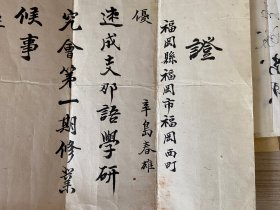 證
福岡縣福岡市福岡西町
優 辛島春雄
速成支那語學研
究會第一期修業
候事